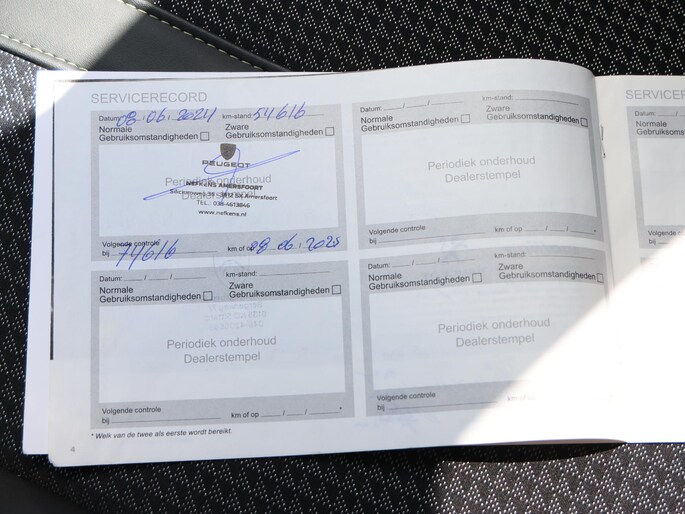 SERVICERECORD
Datum: 08 / 06 / 2024 km-stand: 54616
Normale Gebruiksomstandigheden Zware Gebruiksomstandigheden
PEUGEOT
Periodiek onderhoud
NEFKENS AMERSFOORT
Dealerstempel
Amersfoort
www.nefkens.nl
Volgende controle
bij 74616 km of op 08 / 06 / 2025
Datum: / / km-stand:
Normale Gebruiksomstandigheden Zware Gebruiksomstandigheden
Periodiek onderhoud
Dealerstempel
Volgende controle
bij km of op / /
Datum: / / km-stand:
Normale Gebruiksomstandigheden Zware Gebruiksomstandigheden
Periodiek onderhoud
Dealerstempel
Volgende controle
bij km of op / / *
Datum: / / km-stand:
Normale Gebruiksomstandigheden Zware Gebruiksomstandigheden
Periodiek onderhoud
Dealerstempel
Volgende controle
bij km of
* Welk van de twee als eerste wordt bereikt.
4